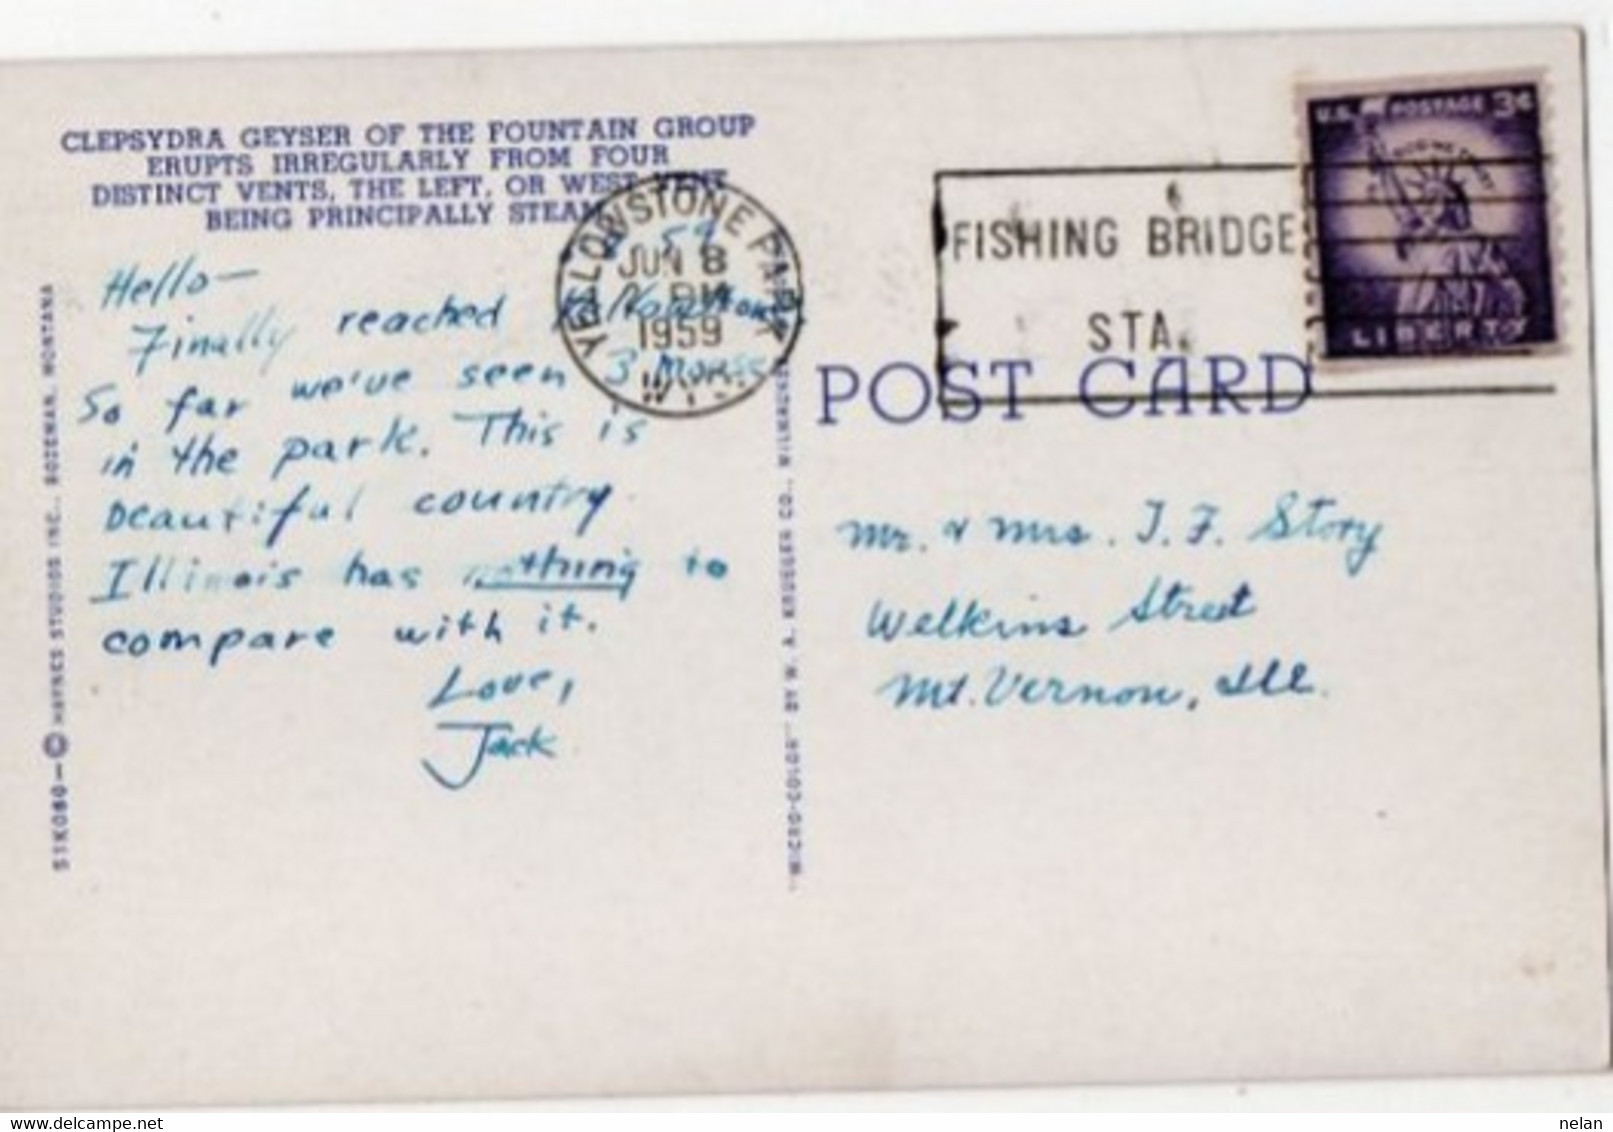 CLEPSYDRA GEYSER OF THE FOUNTAIN GROUP
ERUPTS IRREGULARLY FROM FOUR
DISTINCT VENTS, THE LEFT, OR WEST VENT
BEING PRINCIPALLY STEAM
YELLOWSTONE PARK
JUN 8
PM
1959
WYO.
FISHING BRIDGE
STA.
U.S. POSTAGE 3¢
IN GOD WE TRUST
LIBERTY
POST CARD
59
Hello—
Finally reached
So far we've seen 3 Moose
in the park. This is
beautiful country
Illinois has nothing to
compare with it.
Love,
Jack
Mr. & Mrs. J. F. Story
Welkins Street
Mt. Vernon, Ill.
51K080—© HAYNES STUDIOS INC., BOZEMAN, MONTANA
"MICRO-COLOR" BY W. A. KRUEGER CO., MILWAUKEE
delcampe.net
nelan